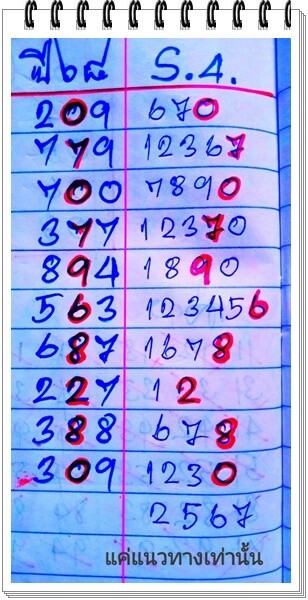 ปี 68 S.4.
209 670
779 12367
700 7890
377 12370
894 1890
563 123456
687 1678
227 12
388 678
309 1230
2567
แค่แนวทางเท่านั้น